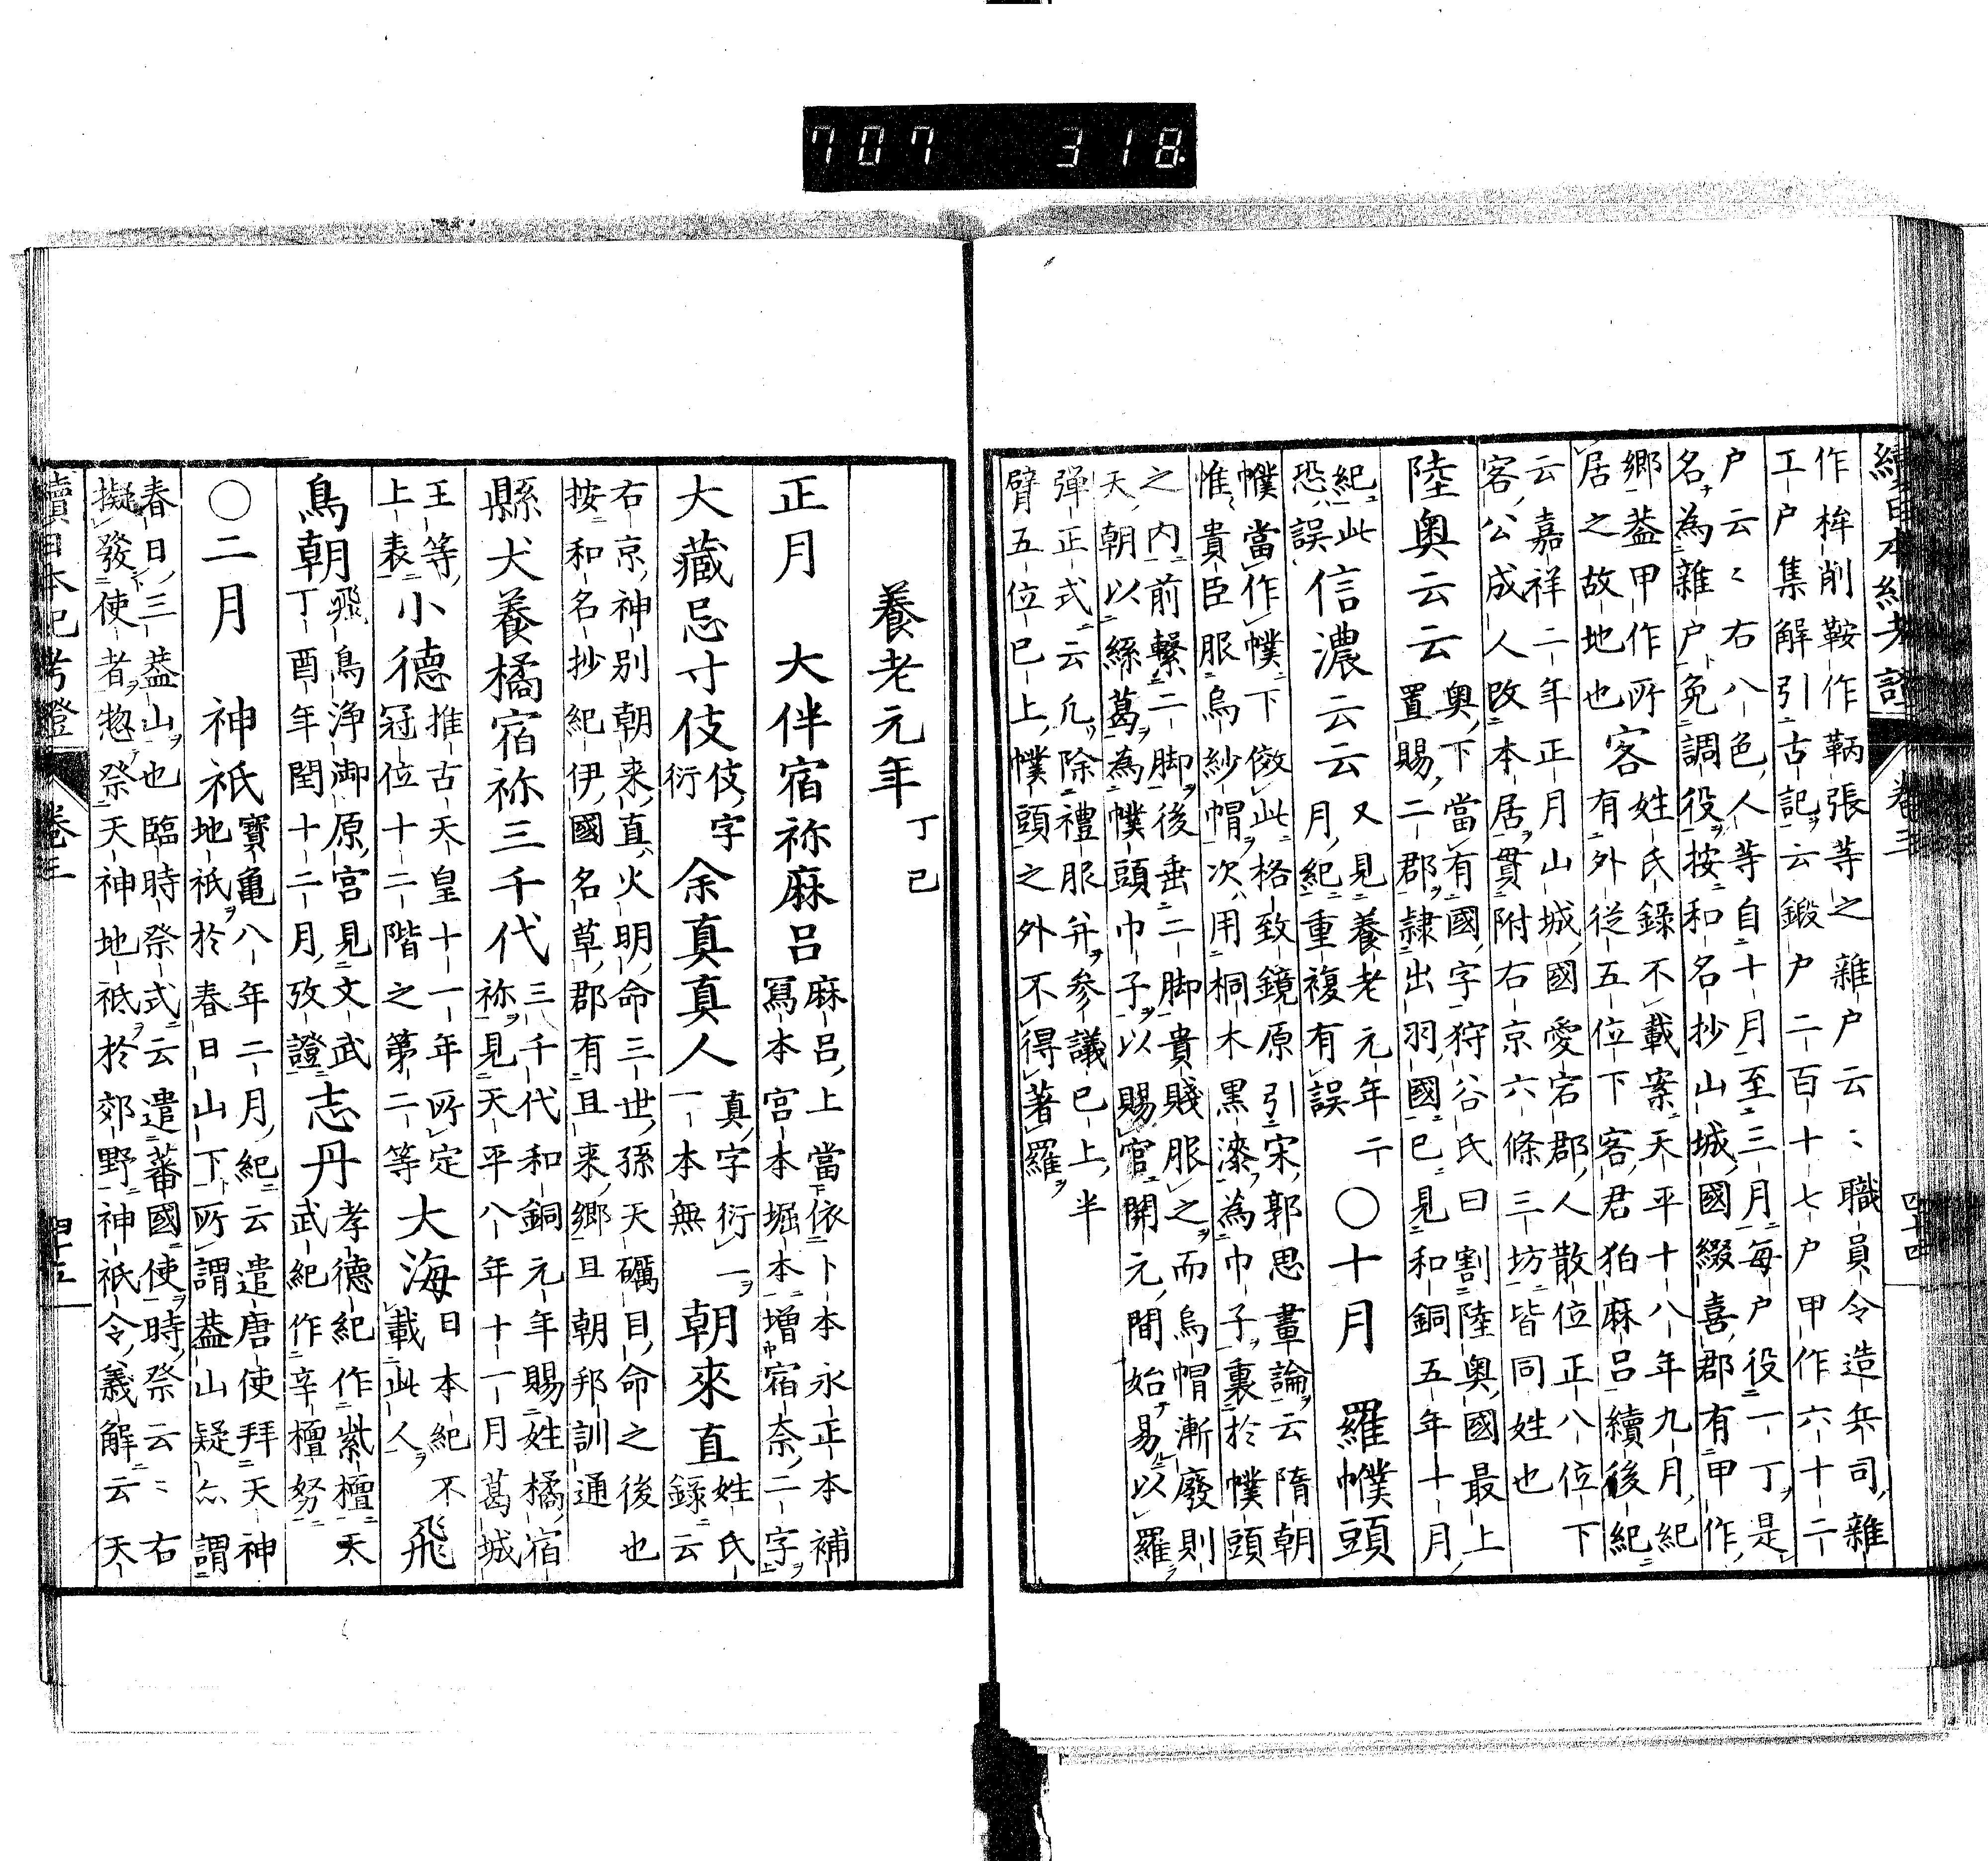 707 318
續日本紀考證 卷三 四十四
作桙削鞍作鞆張等之雜戸云〻職員令造兵司雜
工戸集解引古記云鍛戸二百十七戸甲作六十二
戸云〻右八色人等自十月至三月每戸役一丁是
名為雜戸免調役按和名抄山城國綴喜郡有甲作
鄉葢甲作所
居之故地也
客
姓氏錄不載案天平十八年九月紀
有外從五位下客君狛麻呂續後紀
云嘉祥二年正月山城國愛宕郡人散位正八位下
客公成人改本居貫附右京六條三坊皆同姓也
陸奧云云
奧下當有國字狩谷氏曰割陸奧國最上
置賜二郡隷出羽國已見和銅五年十月
紀此
恐誤
信濃云云
又見養老元年二
月紀重複有誤
〇十月 羅幞頭
幞當作幞下倣此格致鏡原引宋郭思畫論云隋朝
惟貴臣服烏紗帽次用桐木黒漆為巾子裏於幞頭
之内前繫二脚後垂二脚貴賤服之而烏帽漸廢則
天朝以絲葛為幞頭巾子以賜官開元間始易以羅
彈正式云凡除禮服并參議已上半
臂五位已上幞頭之外不得著羅
養老元年 丁巳
正月 大伴宿祢麻呂
麻呂上當依卜本永正本補
冩本宮本堀本增宿奈二字
大藏忌寸伎
伎字
衍
余真真人
真字衍一
一本無
朝來直
姓氏
錄云
右京神別朝来直火明命三世孫天礪目命之後也
按和名抄紀伊國名草郡有且来鄉旦朝邦訓通
縣犬養橘宿祢三千代
三千代和銅元年賜姓橘宿
祢見天平八年十一月葛城
王等
上表
小德
推古天皇十一年所定
冠位十二階之第二等
大海
日本紀不
載此人
飛
鳥朝
飛鳥浄御原宮見文武
丁酉年閏十二月攷證
志丹
孝德紀作紫檀天
武紀作辛檀努
〇二月 神祇
寶亀八年二月紀云遣唐使拜天神
地祇於春日山下所謂葢山疑亦謂
春日三葢山也臨時祭式云遣蕃國使時祭云〻右
擬發使者惣祭天神地祇於郊野神祇令義解云天
續日本紀考證 卷三 四十五